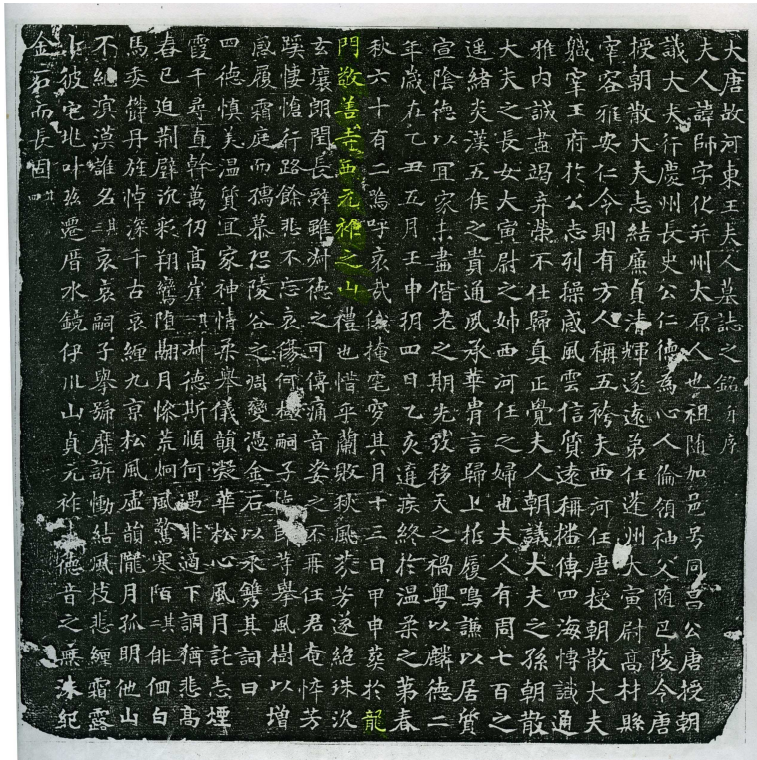 大唐故河東王夫人墓誌之銘并序
夫人諱師字化并州太原人也祖隋加邑号同昌公唐授朝
議大夫行慶州長史公仁德為心人倫領袖父隋巴陵令唐
授朝散大夫志結廉貞清輝遂遠弟任蓬州大寅尉高材縣
宰容雅安仁今則有方人稱五袴夫西河任唐授朝散大夫
職宰王府於公志列操感風雲信質遠稱播傳四海博識通
雅內誠盡竭弃榮不仕歸真正覺夫人朝議大夫之孫朝散
大夫之長女大寅尉之姉西河任之婦也夫人有周七百之
遥緒炎漢五侯之貴通夙承華冑言歸上哲履鳴謙以居質
宣陰德以宜家未盡偕老之期先致移天之禍粵以麟德二
年歲在乙丑五月壬申朔四日乙亥遘疾終於溫柔之第春
秋六十有二嗚呼哀哉儀掩電穸其月十三日甲申葬於龍
門敬善寺西元祚之山禮也惜乎蘭敗秋風蓀芳遂絕珠沉
玄壤朗閏長辭雖淑德之可傳痛音姿之不再任君奄悴芳
蹊悽愴行路餘悲不忘哀傷何極嗣子 等舉風樹以增
感履霜庭而孺慕恐陵谷之凋變憑金石以永鐫其詞曰
四德慎美溫質宜家神情柔舉儀韻凝華松心風月託志煙
霞千尋直幹萬仞高崖其一淑德斯順何遇非適下調猶悲高
春已迫荊璧沉彩翔鸞墮翮月慘荒炯風驚寒陌其二徘佪白
馬委欝丹旌悼深千古哀纏九京松風虛韻隴月孤明他山
不紀演漢誰名其三哀哀嗣子舉號靡訴慟結風枝悲纏霜露
卜彼宅兆叶茲遷厝水鏡伊川山貞元祚 德音之無沫紀
金石而長固其四